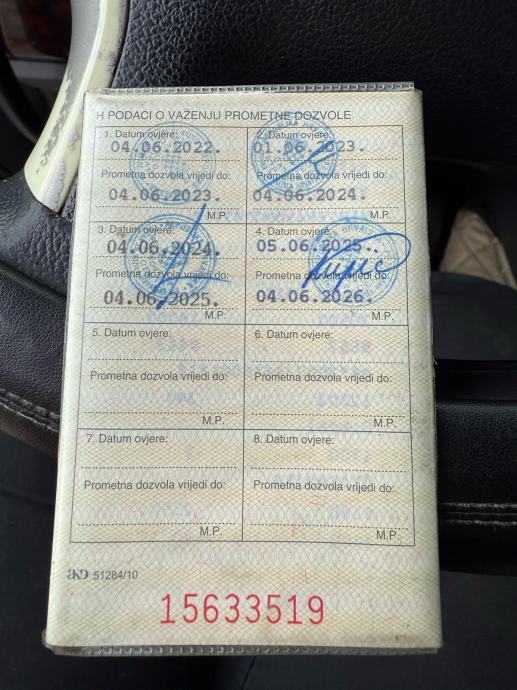 H PODACI O VAŽENJU PROMETNE DOZVOLE
1. Datum ovjere:
04.06.2022.
Prometna dozvola vrijedi do:
04.06.2023.
M.P.
2. Datum ovjere:
01.06.2023.
Prometna dozvola vrijedi do:
04.06.2024.
M.P.
3. Datum ovjere:
04.06.2024.
Prometna dozvola vrijedi do:
04.06.2025.
M.P.
4. Datum ovjere:
05.06.2025.
Prometna dozvola vrijedi do:
04.06.2026.
M.P.
5. Datum ovjere:
Prometna dozvola vrijedi do:
M.P.
6. Datum ovjere:
Prometna dozvola vrijedi do:
M.P.
7. Datum ovjere:
Prometna dozvola vrijedi do:
M.P.
8. Datum ovjere:
Prometna dozvola vrijedi do:
M.P.
AKD 51284/10
15633519